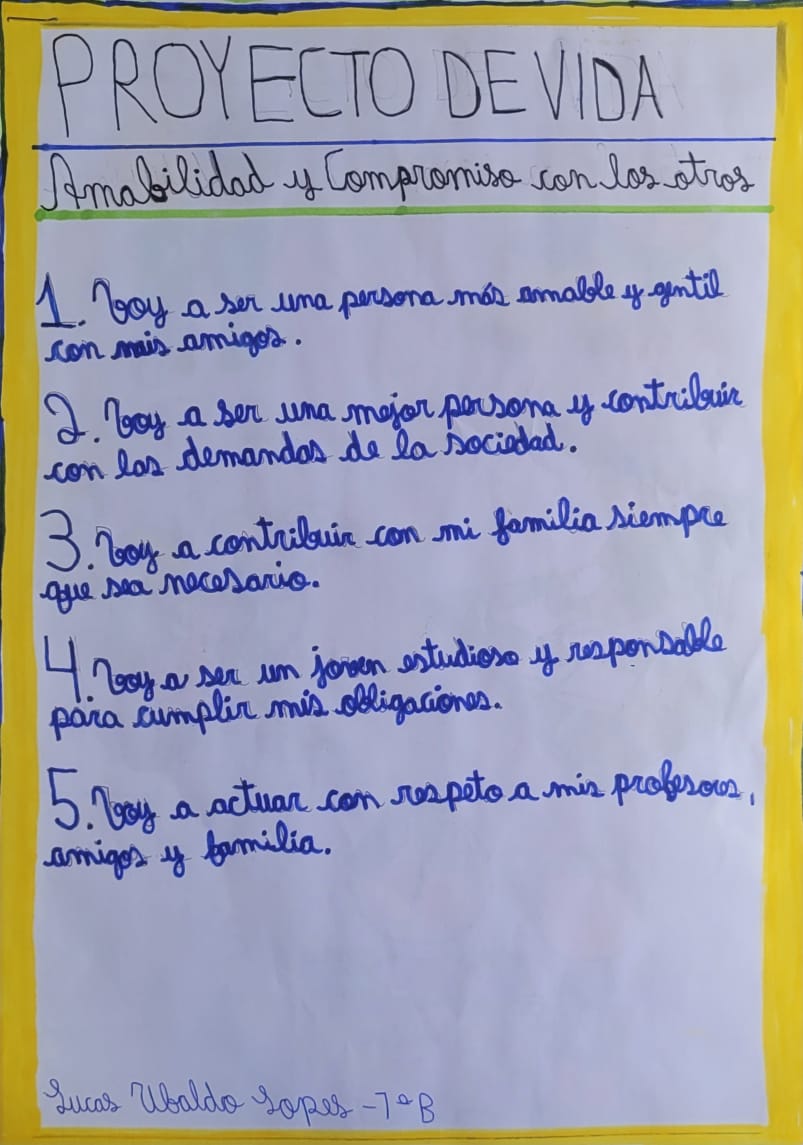 PROYECTO DE VIDA
Amabilidad y Compromiso con los otros
1. Voy a ser una persona más amable y gentil
con mais amigos.
2. Voy a ser una mejor persona y contribuir
con las demandas de la sociedad.
3. Voy a contribuir con mi familia siempre
que sea necesario.
4. Voy a ser un joven estudioso y responsable
para cumplir mis obligaciones.
5. Voy a actuar con respeto a mis profesores,
amigos y familia.
Lucas Ubaldo Lopes - 7ª B